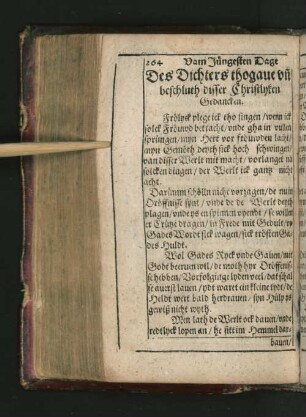 164 Vam Jüngesten Dage
Des Dichters thogaue vñ
beschluth disser Christlyken
Gedancken.
Frölyck plege ick tho singen / wenn ick
solck Fröuwd betracht / vnde gha in vullen
sprüngen / myn Hert vor fröuwden lacht /
myn Gemöth deyth sick hoch schwingen /
van disser Werlt mit macht / vorlanget na
solcken dingen / der Werlt ick gantz nicht
acht.
Darümm schölln nicht vorzagen / de nu in
Dröffnisse synt / vnde de de Werlt deyth
plagen / vnde ys en spinnen vyendt / se willen
er Crütze dragen / in Frede mit Gedult / vp
Gades Wordt sick wagen / sick trösten Ga-
des Huldt.
Wol Gades Ryck vnde Gauen / mit
Gode beeruen wil / de moth hyr Dröffnis-
se hebben / Vorfolginge lyden veel / dat schal
se auerst lauen / ydt waret ein kleine tydt / de
Heldt wert bald herdrauen / syn Hülp ys
gewiß nicht wyth.
Men lath de Werlt ock dauen / vnde
redtlyck lopen an / he sitt im Hemmel dar-
bauen /